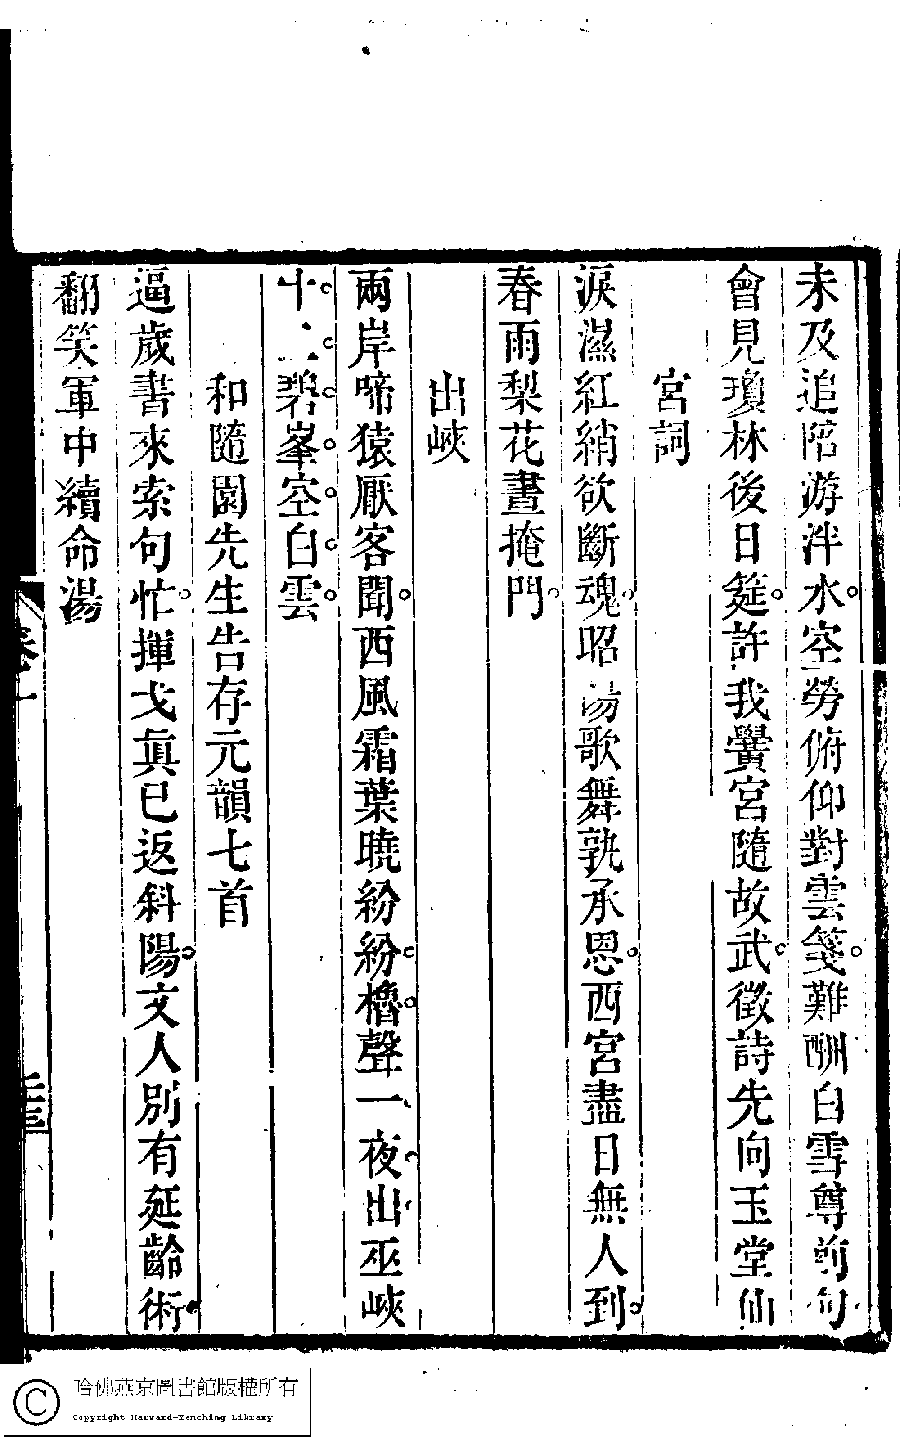 未及追陪游泮水空勞俯仰對雲箋難酬白雪尊前句
會見瓊林後日筵許我黌宮隨故武徵詩先向玉堂仙
宮詞
淚濕紅綃欲斷魂昭陽歌舞孰承恩西宮盡日無人到
春雨梨花晝掩門
出峽
兩岸啼猿厭客聞西風霜葉曉紛紛櫓聲一夜出巫峽
十二碧峯空白雲
和隨園先生告存元韻七首
逼歲書來索句忙揮戈真已返斜陽文人別有延齡術
翻笑軍中續命湯
哈佛燕京圖書館版權所有
Copyright Harvard-Yenching Library